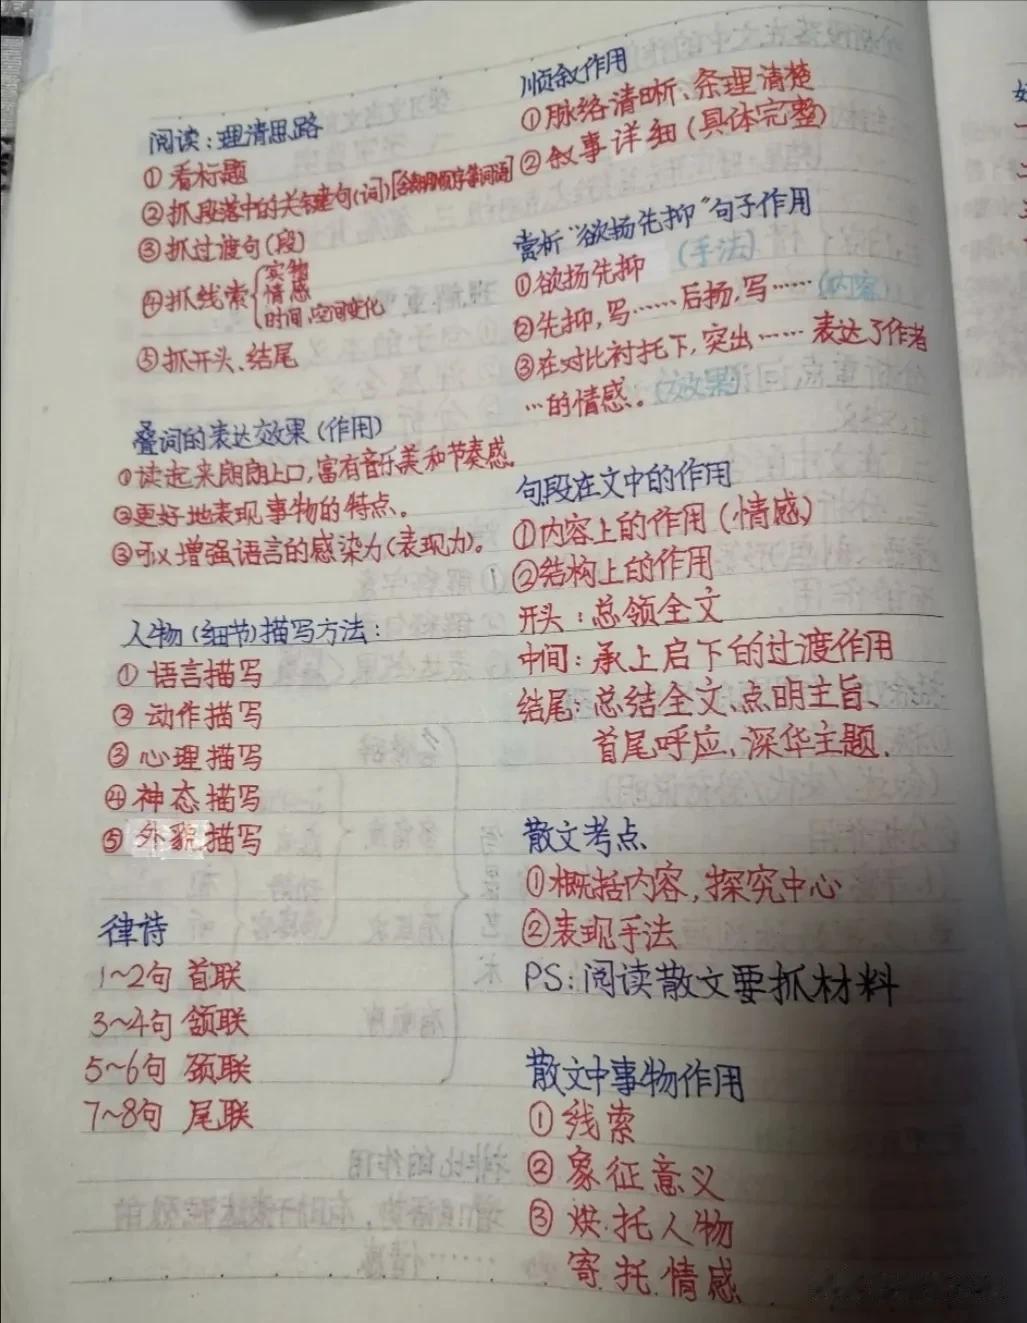 阅读：理清思路
①看标题
②抓段落中的关键句(词)
③抓过渡句(段)
④抓线索
实物
情感
时间、空间变化
⑤抓开头、结尾
叠词的表达效果(作用)
①读起来朗朗上口，富有音乐美和节奏感。
②更好地表现事物的特点。
③可以增强语言的感染力(表现力)。
人物(细节)描写方法：
①语言描写
②动作描写
③心理描写
④神态描写
⑤外貌描写
律诗
1~2句 首联
3~4句 颔联
5~6句 颈联
7~8句 尾联
顺叙作用
①脉络清晰、条理清楚
②叙事详细(具体完整)
赏析“欲扬先抑”句子作用
①欲扬先抑 (手法)
②先抑，写……后扬，写……(内容)
③在对比衬托下，突出……表达了作者
…的情感。(效果)
句段在文中的作用
①内容上的作用(情感)
②结构上的作用
开头：总领全文
中间：承上启下的过渡作用
结尾：总结全文、点明主旨、
首尾呼应、深华主题.
散文考点
①概括内容，探究中心
②表现手法
PS:阅读散文要抓材料
散文中事物作用
①线索
②象征意义
③烘托人物
寄托情感